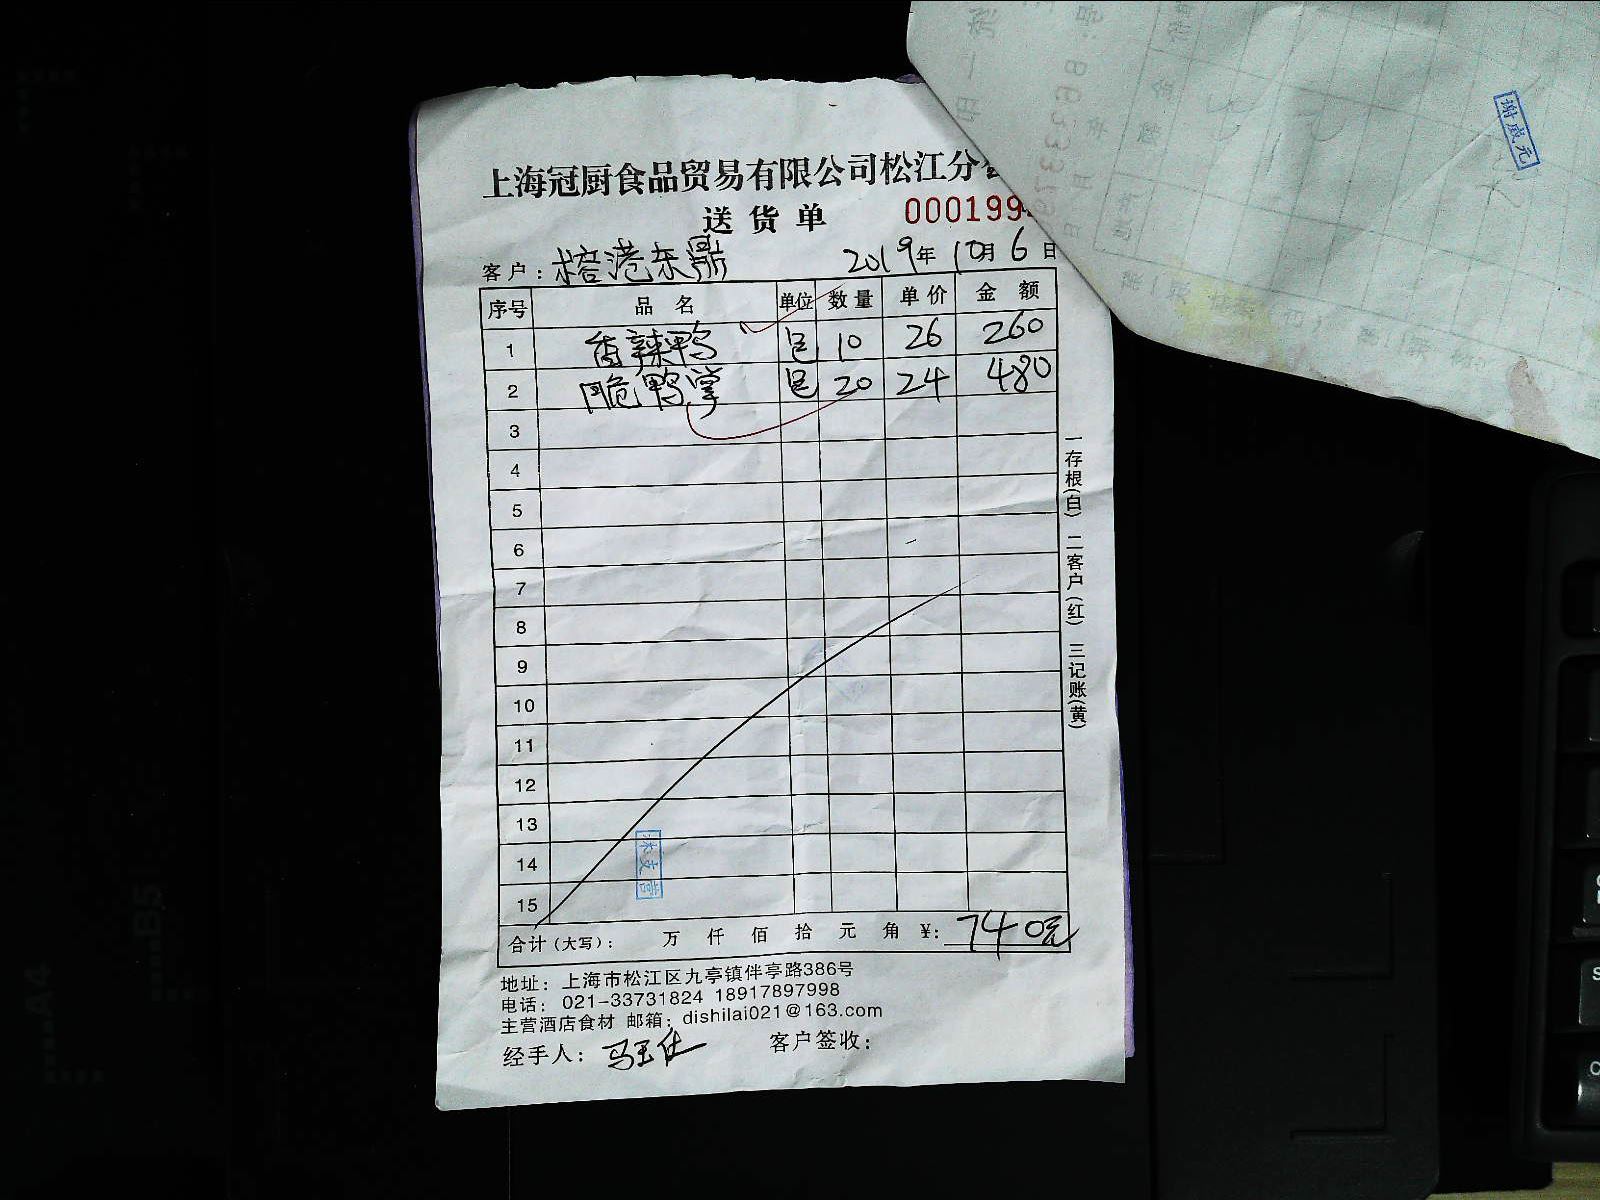 上海冠厨食品贸易有限公司松江分
送货单 000199
客户: 榕港东鼎 2019年10月6日
序号 品名 单位 数量 单价 金额
1 香辣鸭 包 10 26 260
2 脆鸭掌 包 20 24 480
3
4
5
6
7
8
9
10
11
12
13
14
15
合计(大写): 万 仟 佰 拾 元 角 ¥: 740元
地址: 上海市松江区九亭镇伴亭路386号
电话: 021-33731824 18917897998
主营酒店食材 邮箱: dishilai021@163.com
经手人: 马玉仕 客户签收:
一存根(白) 二客户(红) 三记账(黄)
谢成元